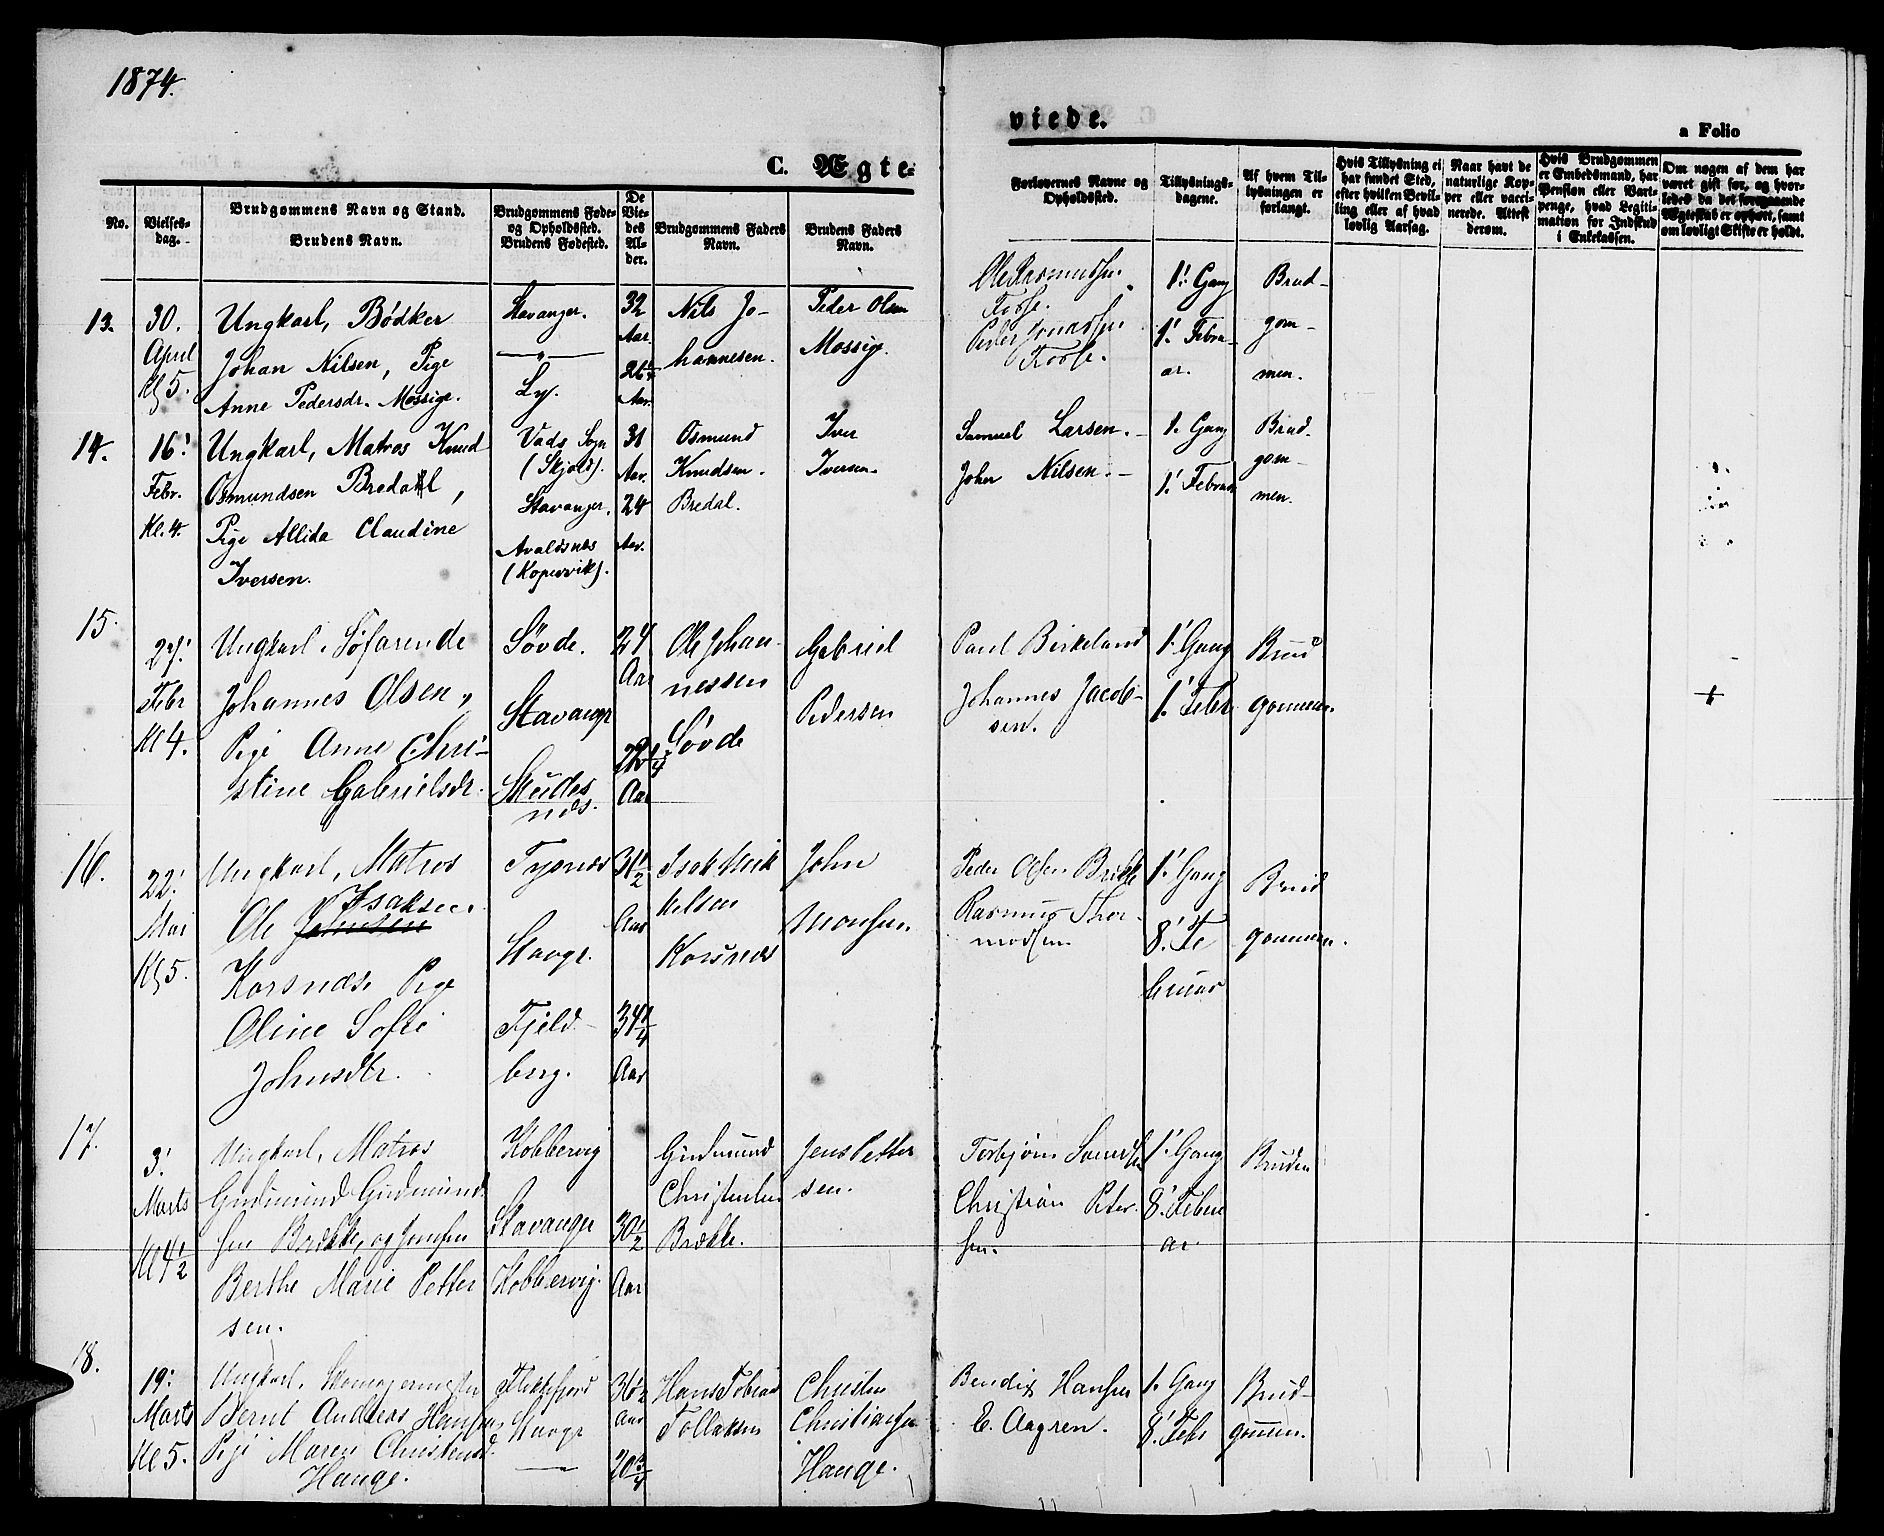 1874.
C. Ægte-
viede.
a Folio
No.
Vielses-
dag.
Brudgommens Navn og Stand.
Brudens Navn.
Brudgommens Føde-
og Opholdssted.
Brudens Fødested.
De
Vie-
des
Al-
der.
Brudgommens Faders
Navn.
Brudens Faders
Navn.
Forlovernes Navne og
Opholdssted.
Tillysnings-
dagene.
Af hvem Til-
lysningen er
forlangt.
Hvis Tillysning ei
har fundet Sted,
efter hvilken Bevil-
ling eller af hvad
lovlig Aarsag.
Naar havt de
naturlige Kop-
per eller vacci-
nerede. Attest
derom.
Hvis Brudgommen
er Embedsmand, har
Pension eller Vart-
penge, hvad Legiti-
mation for Indskud
i Enkekassen.
Om nogen af dem har
været gift før, og hvor-
ledes da det foregaaende
Ægteskab er ophørt, samt
om lovligt Skifte er holdt.
13.
30.
April
Kl 5.
Ungkarl, Bødker
Johan Nilsen, Pige
Anne Pedersdr. Mossige.
Stavanger.
—"—
Ly.
32
Aar.
26
Aar.
Nils Jo-
hannesen.
Peder Olsen
Mossige.
Ole Rasmussen
Peder
1' Gang
1' Febru-
ar.
Brud-
gom-
men.
14.
16'
Febr.
Kl. 4.
Ungkarl, Matros Knud
Osmundsen Bredal,
Pige Allida Claudine
Iversen.
Vads Sogn
(Skjold).
Stavanger.
Avaldsnes
(Kopervik).
31
Aar.
24
Aar.
Osmund
Knudsen
Bredal.
Iver
Iversen.
Samuel Larsen.
Johen Nilsen.
1. Gang
1' Februar
Brud-
gom-
men.
15.
27'
Febr
Kl 4.
Ungkarl. Søfarende
Johannes Olsen,
Pige Anne Chri-
stine Gabrielsdr.
Søvde.
Stavangr
Skudes
nes.
24
Aar
22 1/4
Aar
Ole Johan-
nessen
Søvde
Gabriel
Pedersen
Paul Birkeland
Johannes Jacob-
sen.
1' Gang
1' Febr
Brud
gommen.
+
16.
22'
Mai
Kl 5.
Ungkarl, Matros
Isaksen
Ole Johnsen
Korsnæs, Pige
Oline Sofie
Johnsdtr.
Tysnæs
Stavgr.
Fjeld-
berg.
31 1/2
Aar
34 1/4
Aar
Isak Mik
kelsen
Korsnæs
John
Monsen.
Peder Olsen Brekke
Rasmus Thor-
modsen
1' Gang
8' Fe
bruar
Brud
gommen.
17.
3'
Marts
Kl 4 1/2
Ungkarl, Matros
Gudmund Gudmund-
sen Brekke, og Jomfru
Berthe Marie Petter
sen.
Kobbervig
Stavanger
Kobbervig.
30 1/2
Aar
Gudmund
Christensen
Brekke.
Jens Petter
sen.
Torbjørn
Christian Peter-
sen.
1' Gang
8' Febru
ar
Bruden
18.
19'
Marts
Kl 5.
Ungkarl. Skomagermester
Bernt Andreas Hansen
Pige Maren Christensd.
Hauge.
Flekkefjord
Stavgr
—
36 1/2
Aar
20 3/4
Hans Tobias
Tollaksen
Christen
Christiansen
Hauge.
Bendix Hansen
E. Aagren.
1. Gang
8' Febr
Brud-
gommen.